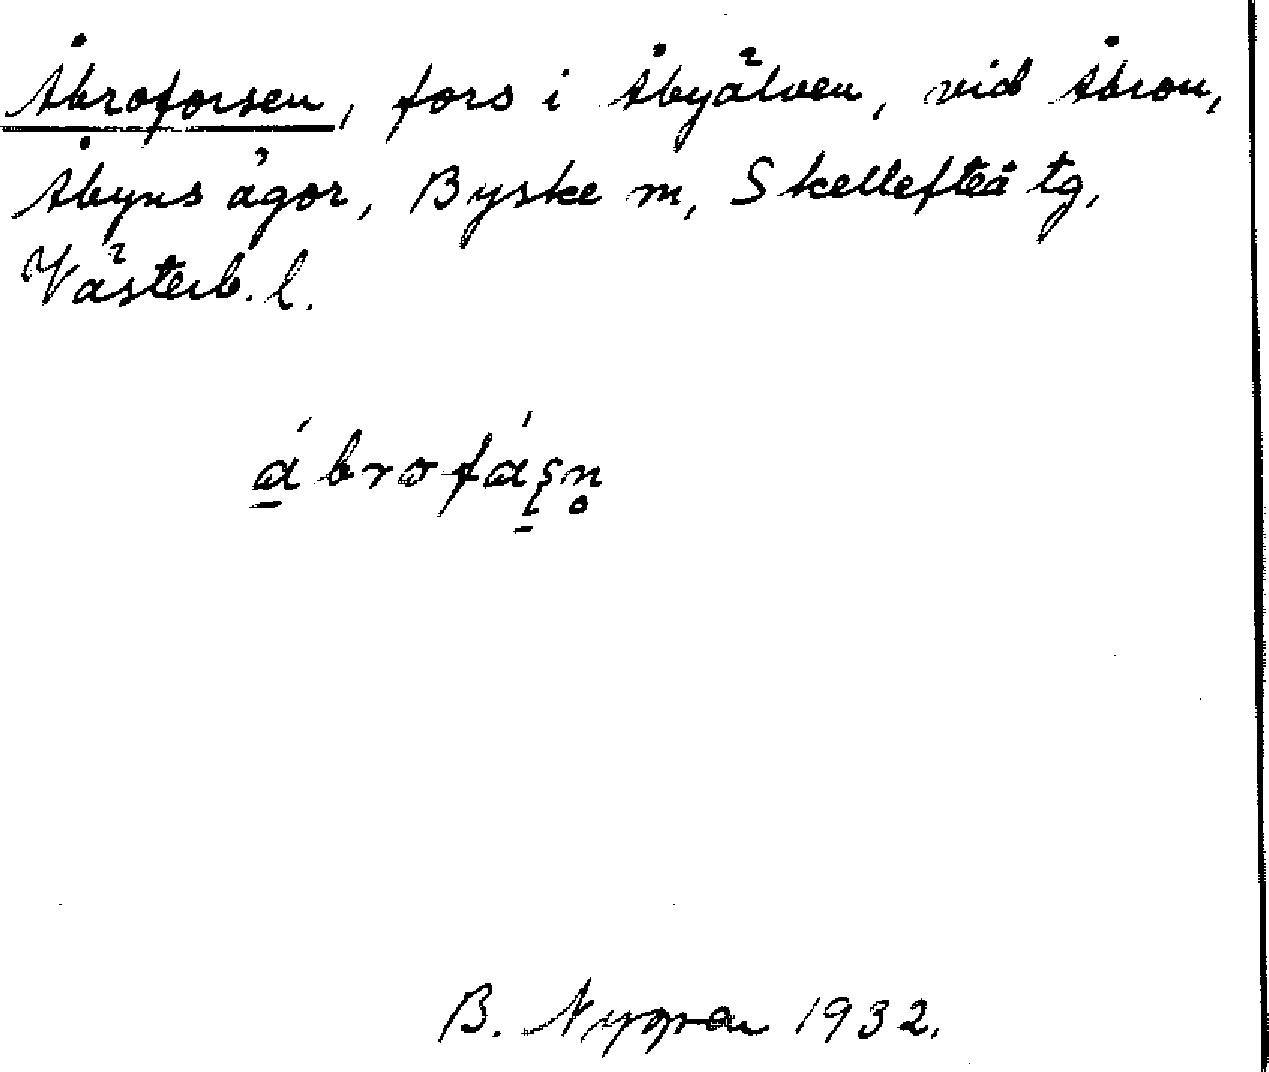 Åbroforsen, fors i Åbyälven, vid Åbron,
Åbyns ägor, Byske m, Skellefteå tg,
Västerb. l.
B. Nygren 1932.